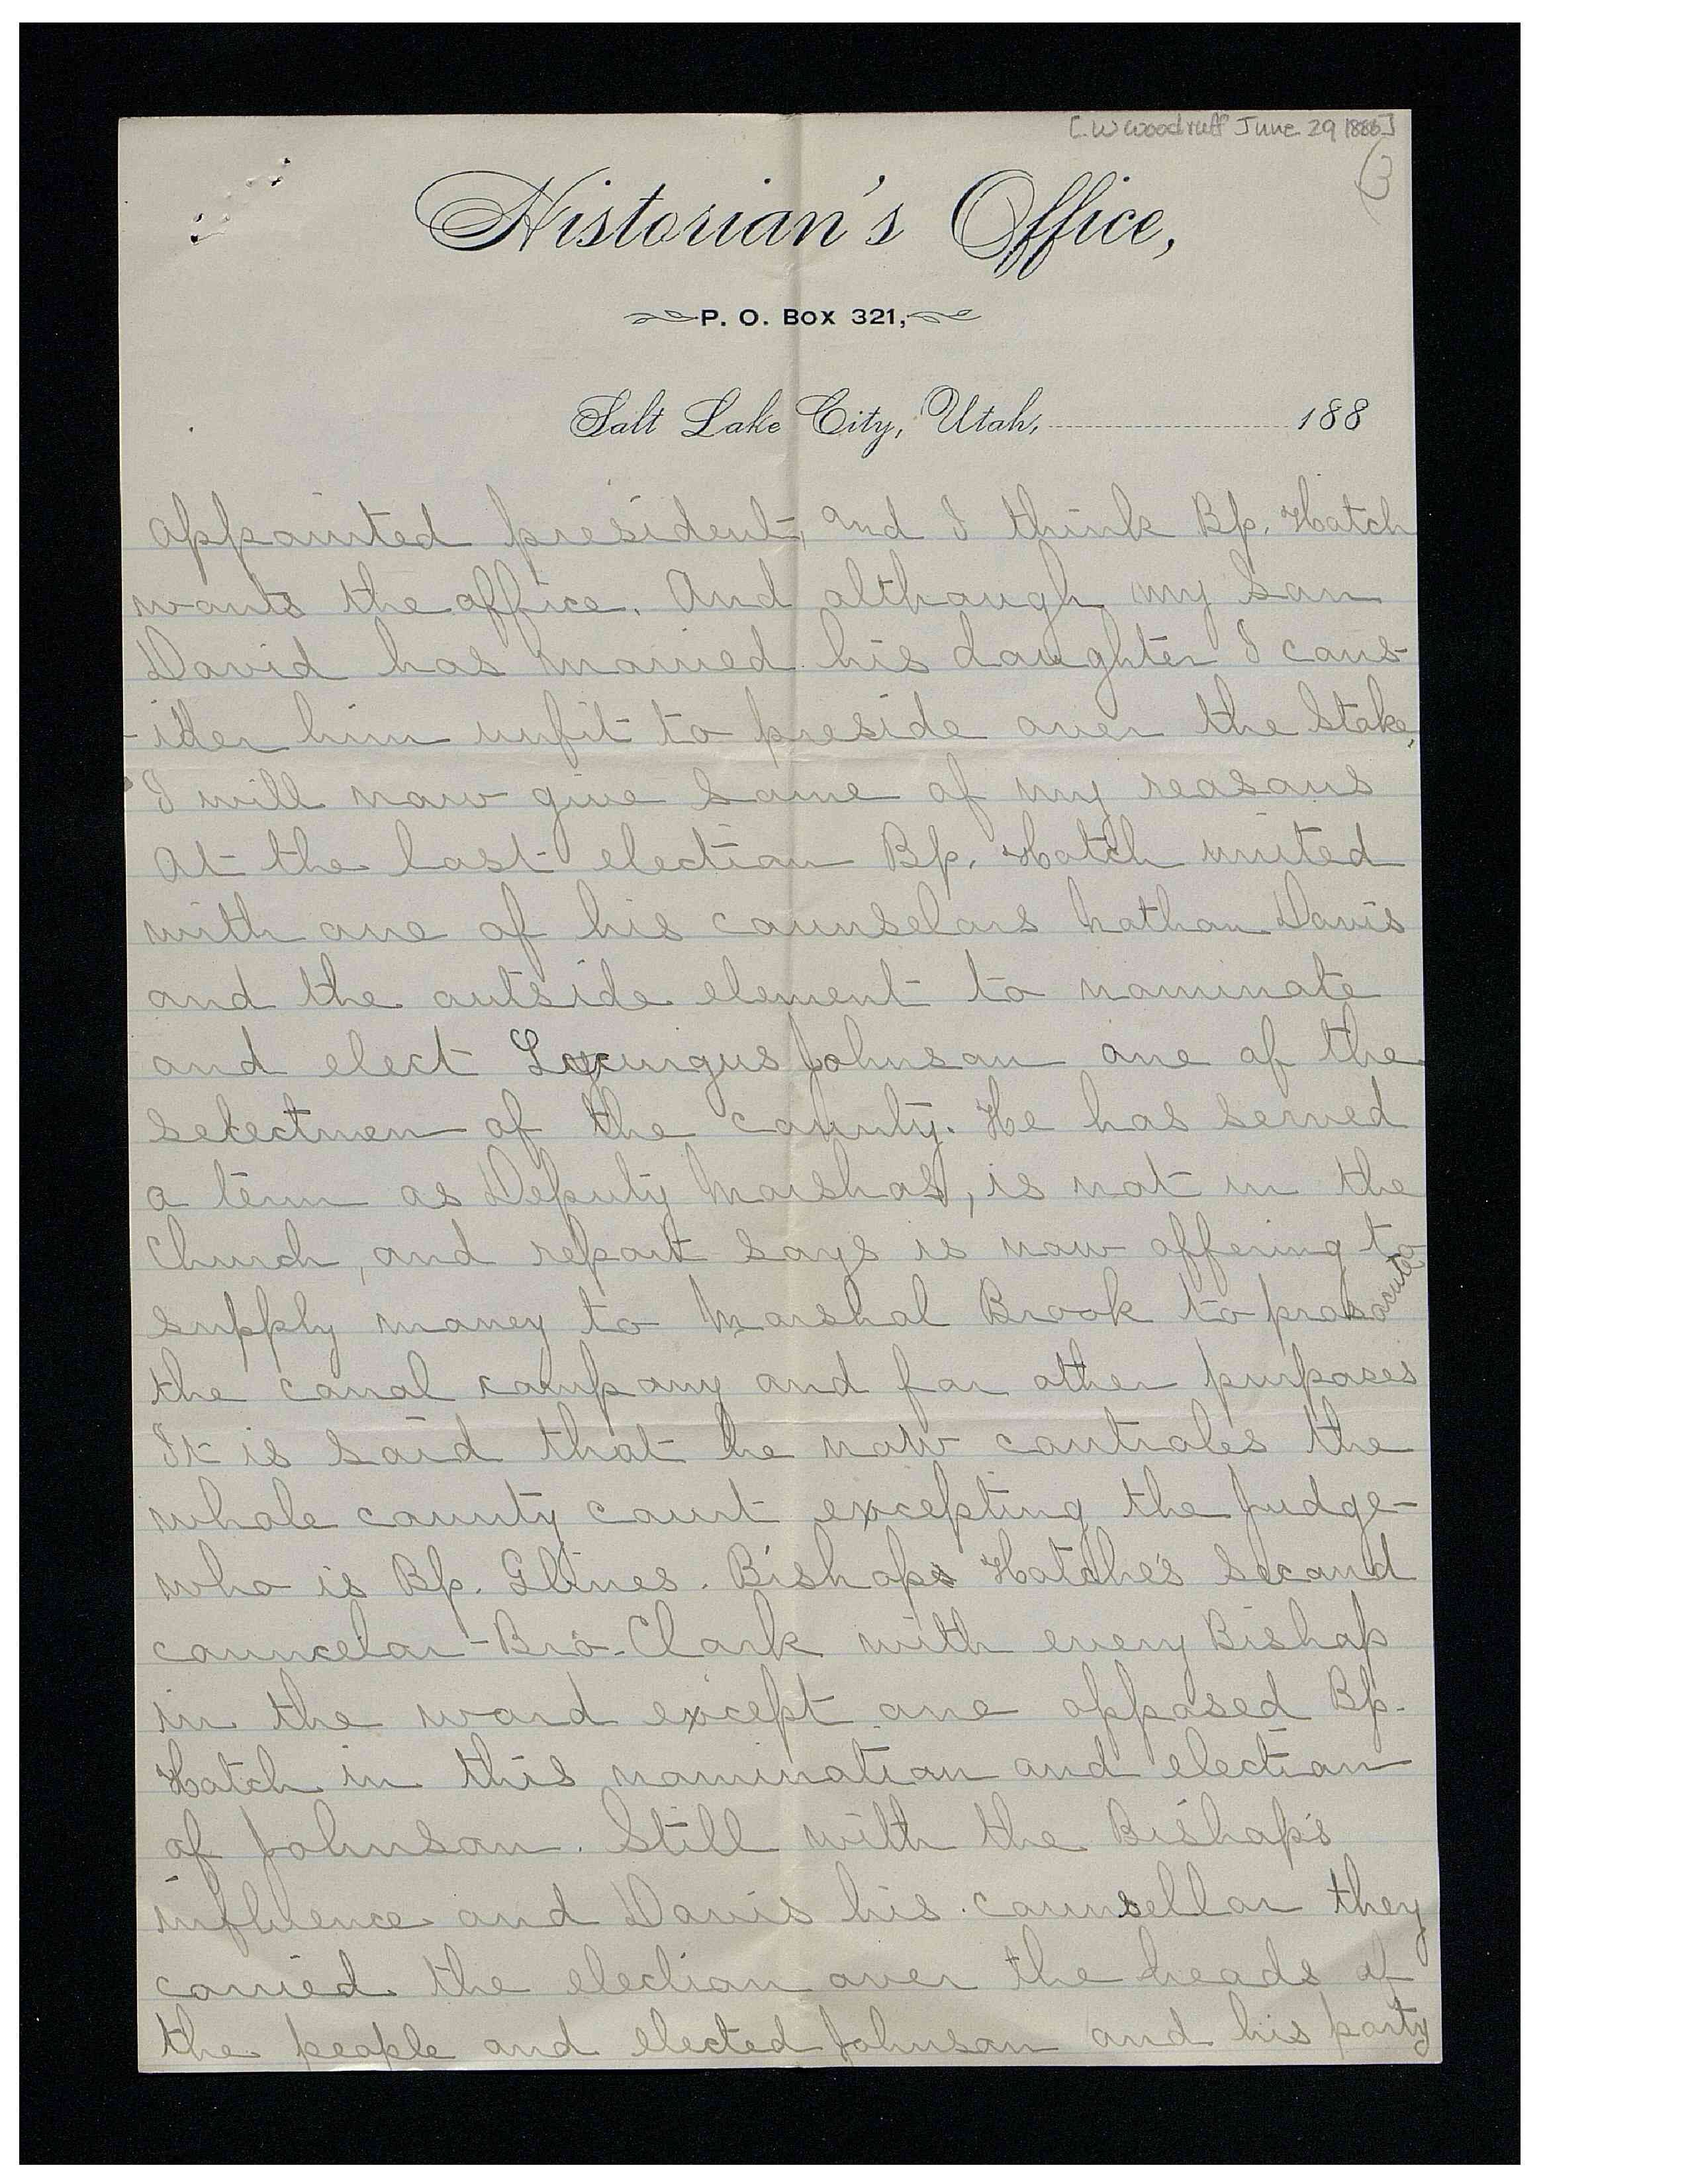 [W Woodruff June 29 1886]
3
Historian's Office,
P. O. Box 321,
Salt Lake City, Utah, 188
appointed president, and I think Bp. Hatch
wants the office. And although my son
David has married his daughter I cons-
-ider him unfit to preside over the Stake,
I will now give some of my reasons
At the last election Bp. Hatch united
with one of his counselors Nathan Davis
and the outside element to nominate
and elect Johnson one of the
selectmen of the county. He has served
a term as Deputy Marshal, is not in the
Church, and report says is now offering to
supply money to Marshal Brook to prosacute
the canal company and for other purposes
It is said that he now controles the
whole county court excepting the Judge-
who is Bp. Glines. Bishops Hatche's second
councelor-Bro-Clark with every Bishop
in the ward except one opposed Bp.
Hatch in this nomination and election
of Johnson. Still with the Bishop's
influence and Davis his counsellor they
carried the election over the heads of
the people and elected Johnson and his party